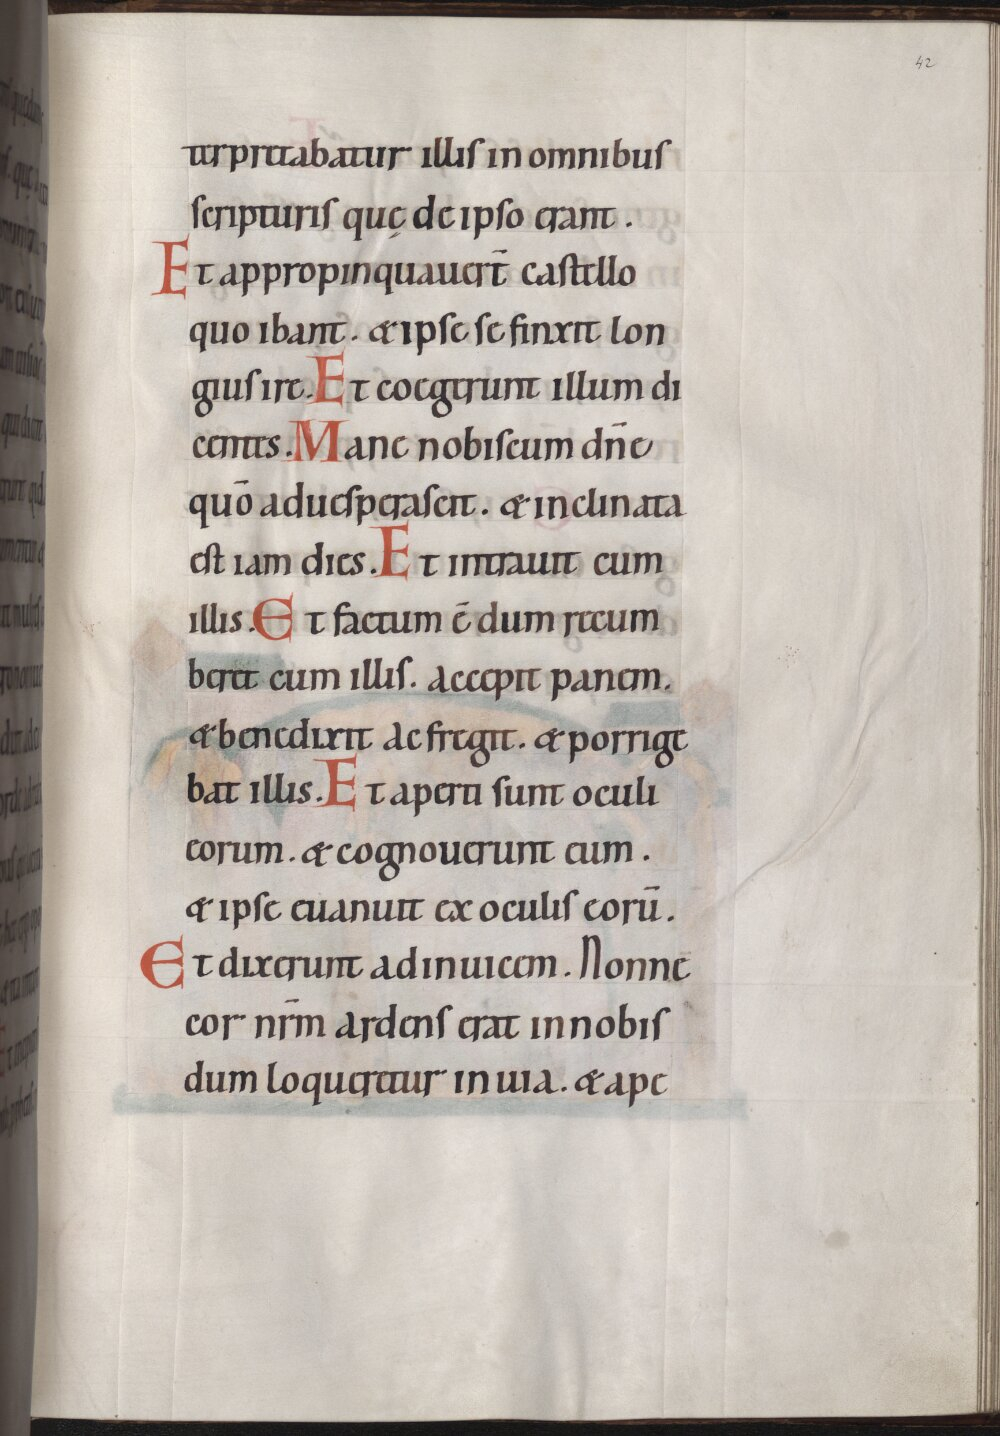 42
terpretabatur illis in omnibus
scripturis quę de ipso erant .
Et appropinquauer̄t castello
quo ibant . & ipse se finxit lon
gius ire . Et coegerunt illum di
centes . Mane nobiscum dn̄e
quō aduesperascit . & inclinata
est iam dies . Et intrauit cum
illis . Et factum ē dum recum
beret cum illis . accepit panem .
& benedixit ac fregit . & porrige
bat illis . Et aperti sunt oculi
eorum . & cognouerunt eum .
& ipse euanuit ex oculis eorū .
Et dixerunt adinuicem . Nonne
cor nr̄m ardens erat in nobis
dum loqueretur in uia . & ape